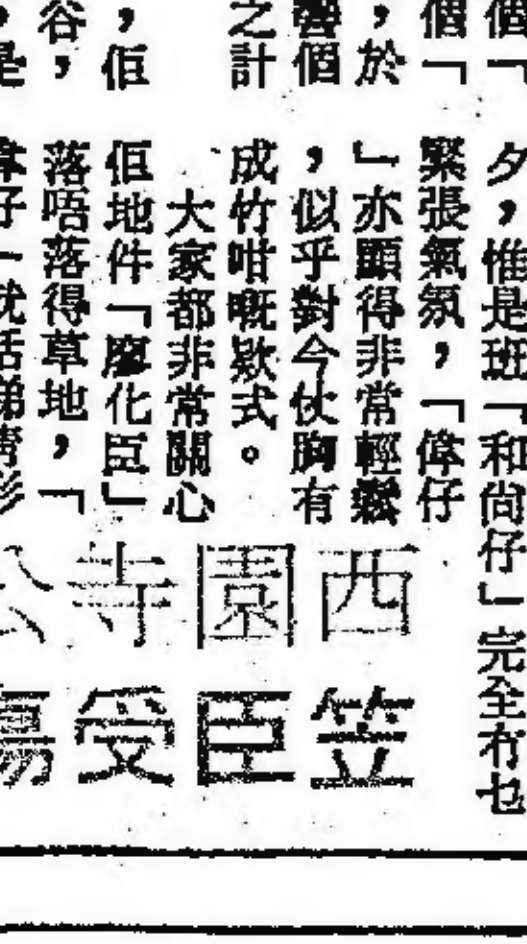 個「
個「
，於
響個
之計
，佢
谷，
夕，惟是班「和尚仔」完全冇乜
緊張氣氛，「偉仔
」亦顯得非常輕鬆
，似乎對今仗胸有
成竹咁嘅欵式。
大家都非常關心
佢地件「廖化臣」
落唔落得草地，「
西園寺公
笠臣受傷